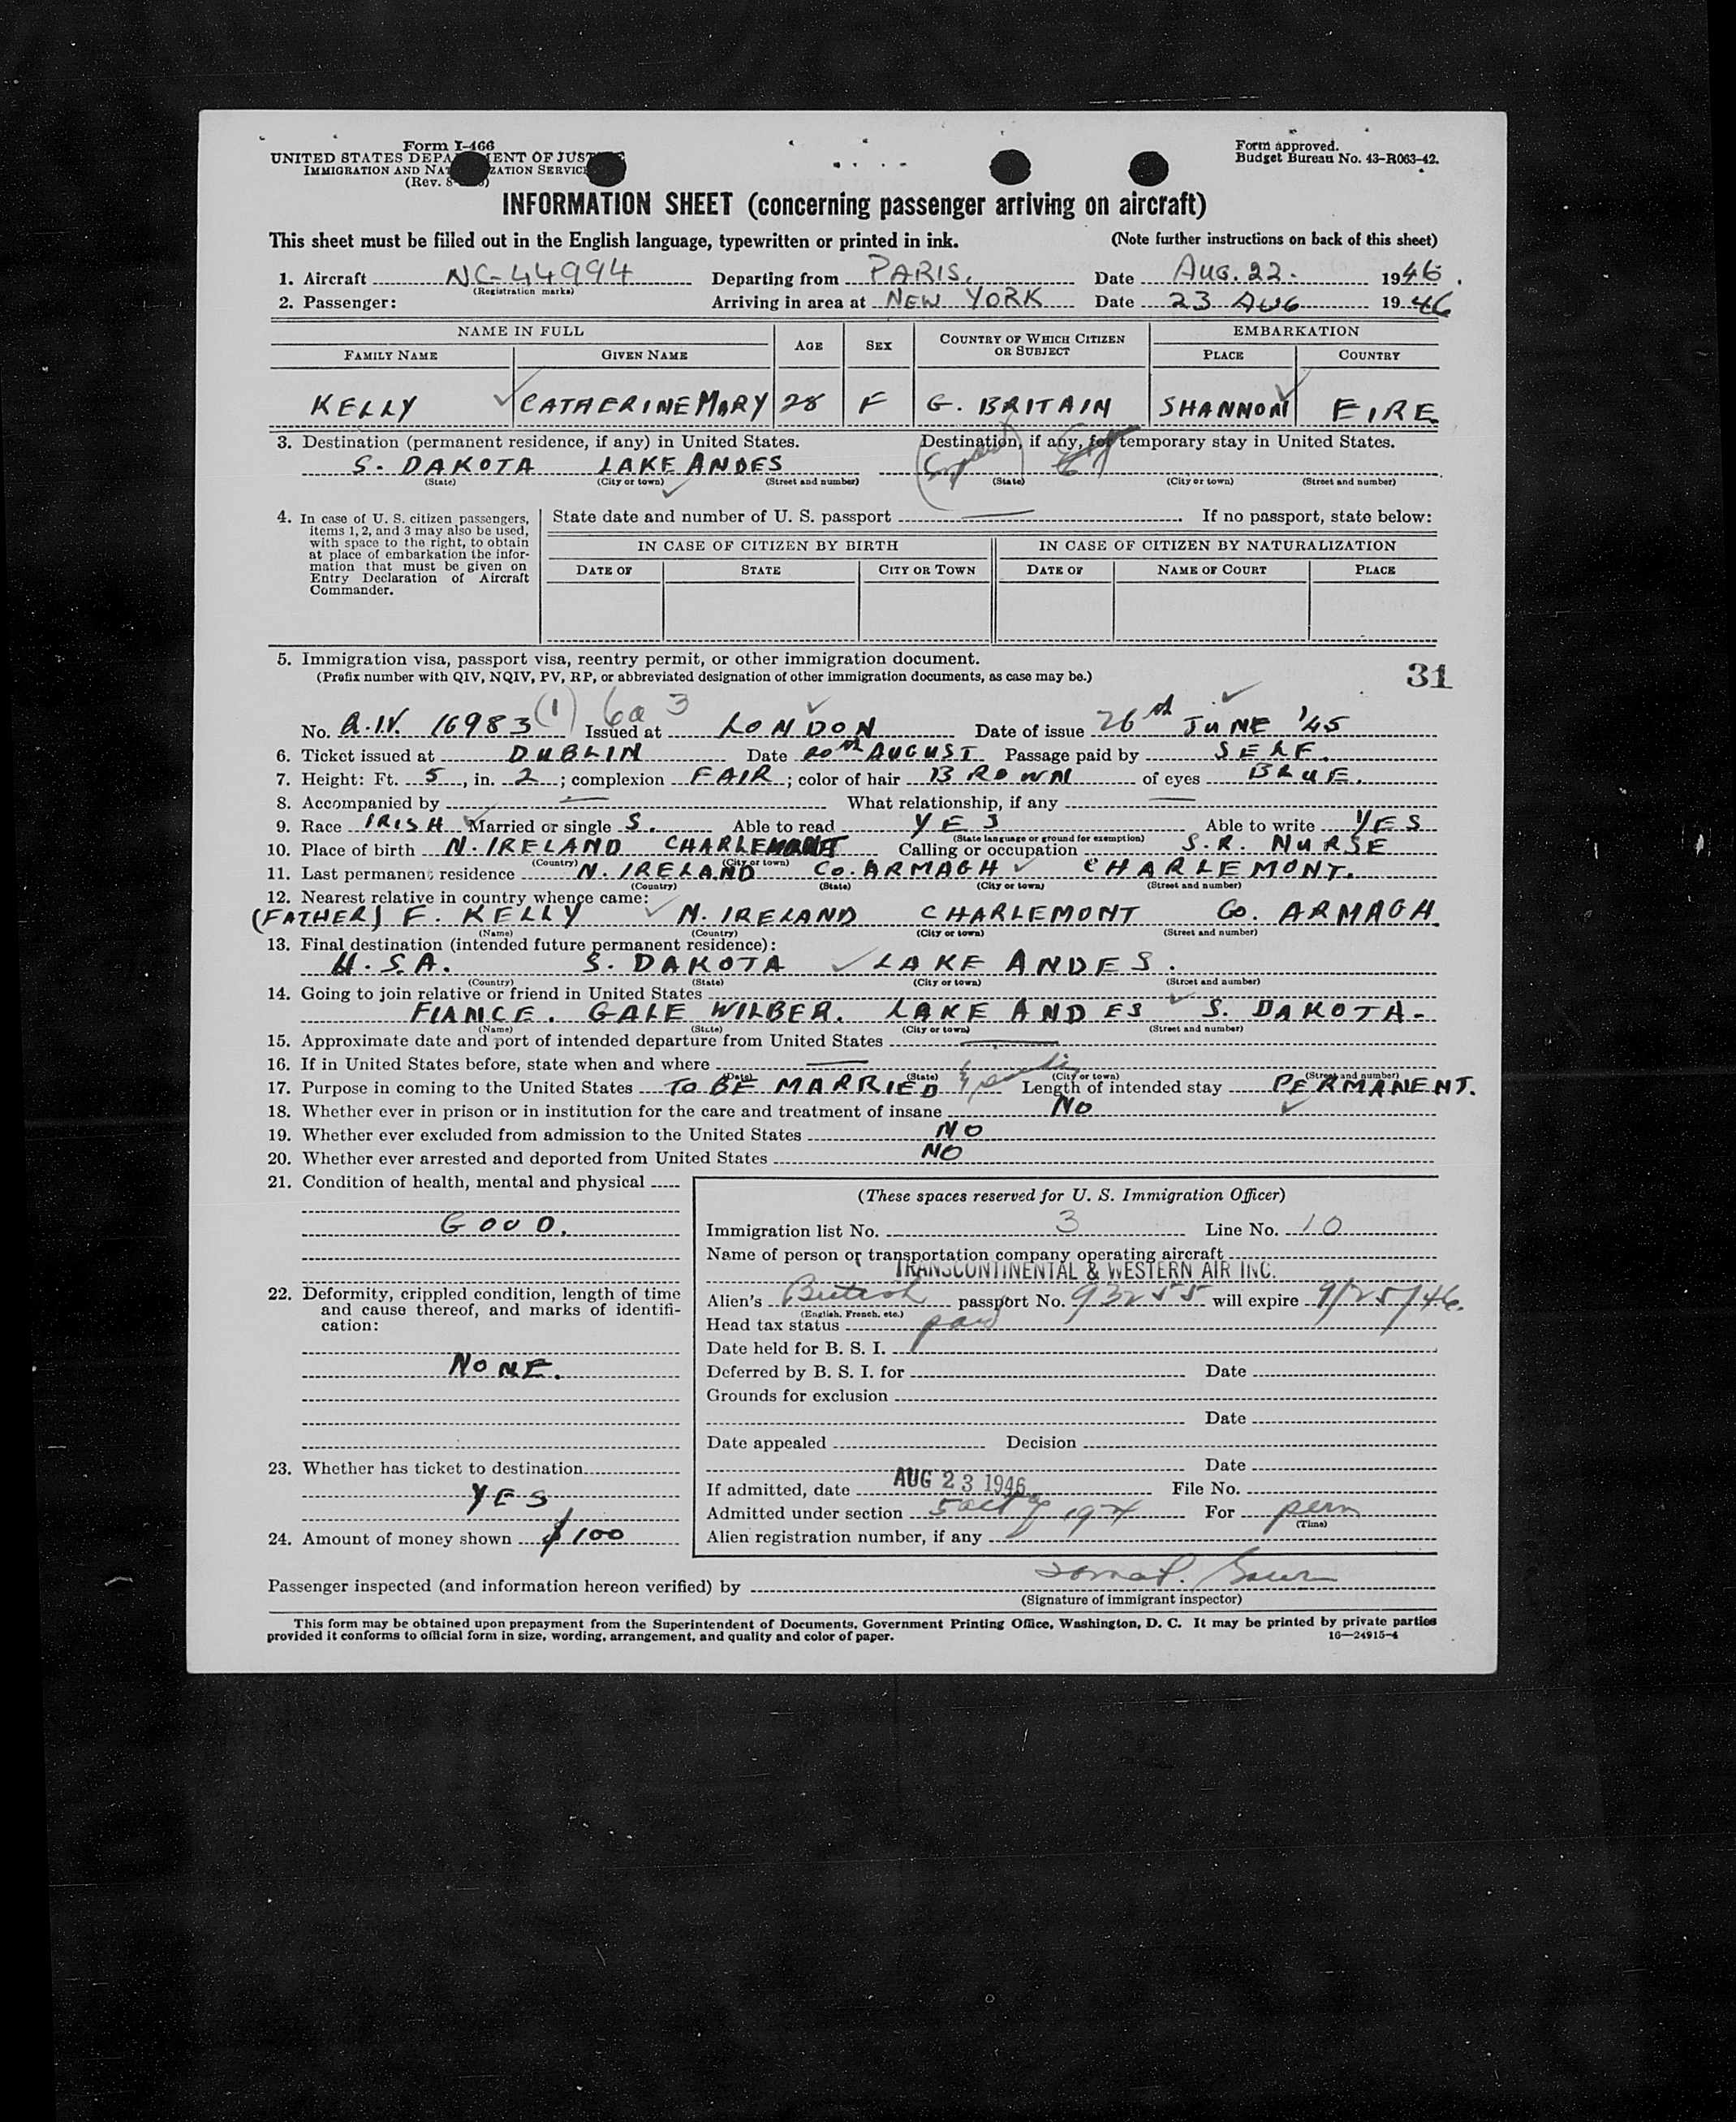 Form I-466
UNITED STATES DEPA MENT OF JUST
IMMIGRATION AND NAT ZATION SERVICE
(Rev. 8- )
Form approved.
Budget Bureau No. 43-R063-42.
INFORMATION SHEET (concerning passenger arriving on aircraft)
This sheet must be filled out in the English language, typewritten or printed in ink. (Note further instructions on back of this sheet)
1. Aircraft NC-44994 Departing from PARIS. Date AUG. 22. 1946.
(Registration marks)
2. Passenger: Arriving in area at NEW YORK Date 23 AUG 1946
NAME IN FULL AGE SEX COUNTRY OF WHICH CITIZEN OR SUBJECT EMBARKATION
FAMILY NAME GIVEN NAME PLACE COUNTRY
KELLY CATHERINE MARY 28 F G. BRITAIN SHANNON EIRE
3. Destination (permanent residence, if any) in United States. Destination, if any, for temporary stay in United States.
S. DAKOTA LAKE ANDES
(State) (City or town) (Street and number) (State) (City or town) (Street and number)
4. In case of U. S. citizen passengers, items 1, 2, and 3 may also be used, with space to the right, to obtain at place of embarkation the information that must be given on Entry Declaration of Aircraft Commander.
State date and number of U. S. passport — If no passport, state below:
IN CASE OF CITIZEN BY BIRTH IN CASE OF CITIZEN BY NATURALIZATION
DATE OF STATE CITY OR TOWN DATE OF NAME OF COURT PLACE
5. Immigration visa, passport visa, reentry permit, or other immigration document.
(Prefix number with QIV, NQIV, PV, RP, or abbreviated designation of other immigration documents, as case may be.)
31
(1) 6a 3
No. Q.IV. 16983 Issued at LONDON Date of issue 26th JUNE '45
6. Ticket issued at DUBLIN Date 20th AUGUST Passage paid by SELF.
7. Height: Ft. 5, in. 2; complexion FAIR; color of hair BROWN of eyes BLUE.
8. Accompanied by — What relationship, if any —
9. Race IRISH Married or single S. Able to read YES Able to write YES
(State language or ground for exemption)
10. Place of birth N. IRELAND CHARLEMONT Calling or occupation S.R. NURSE
(Country) (City or town)
11. Last permanent residence N. IRELAND CO. ARMAGH CHARLEMONT.
(Country) (State) (City or town) (Street and number)
12. Nearest relative in country whence came:
(FATHER) F. KELLY N. IRELAND CHARLEMONT CO. ARMAGH
(Name) (Country) (City or town) (Street and number)
13. Final destination (intended future permanent residence):
U.S.A. S. DAKOTA LAKE ANDES.
(Country) (State) (City or town) (Street and number)
14. Going to join relative or friend in United States
FIANCE. GALE WILBER. LAKE ANDES S. DAKOTA.
(Name) (State) (City or town) (Street and number)
15. Approximate date and port of intended departure from United States —
16. If in United States before, state when and where —
(Date) (State) (City or town) (Street and number)
17. Purpose in coming to the United States TO BE MARRIED Length of intended stay PERMANENT.
18. Whether ever in prison or in institution for the care and treatment of insane NO
19. Whether ever excluded from admission to the United States NO
20. Whether ever arrested and deported from United States NO
21. Condition of health, mental and physical
GOOD.
22. Deformity, crippled condition, length of time and cause thereof, and marks of identification:
NONE.
23. Whether has ticket to destination
YES
24. Amount of money shown $100
(These spaces reserved for U. S. Immigration Officer)
Immigration list No. 3 Line No. 10
Name of person or transportation company operating aircraft
TRANSCONTINENTAL & WESTERN AIR INC.
Alien's British passport No. 93255 will expire 9/25/46.
(English, French, etc.)
Head tax status paid
Date held for B. S. I.
Deferred by B. S. I. for Date
Grounds for exclusion
Date
Date appealed Decision
Date
If admitted, date AUG 23 1946 File No.
Admitted under section 5 act of 1924 For perm
(Time)
Alien registration number, if any
Passenger inspected (and information hereon verified) by
(Signature of immigrant inspector)
This form may be obtained upon prepayment from the Superintendent of Documents, Government Printing Office, Washington, D. C. It may be printed by private parties
provided it conforms to official form in size, wording, arrangement, and quality and color of paper. 16—24915-4